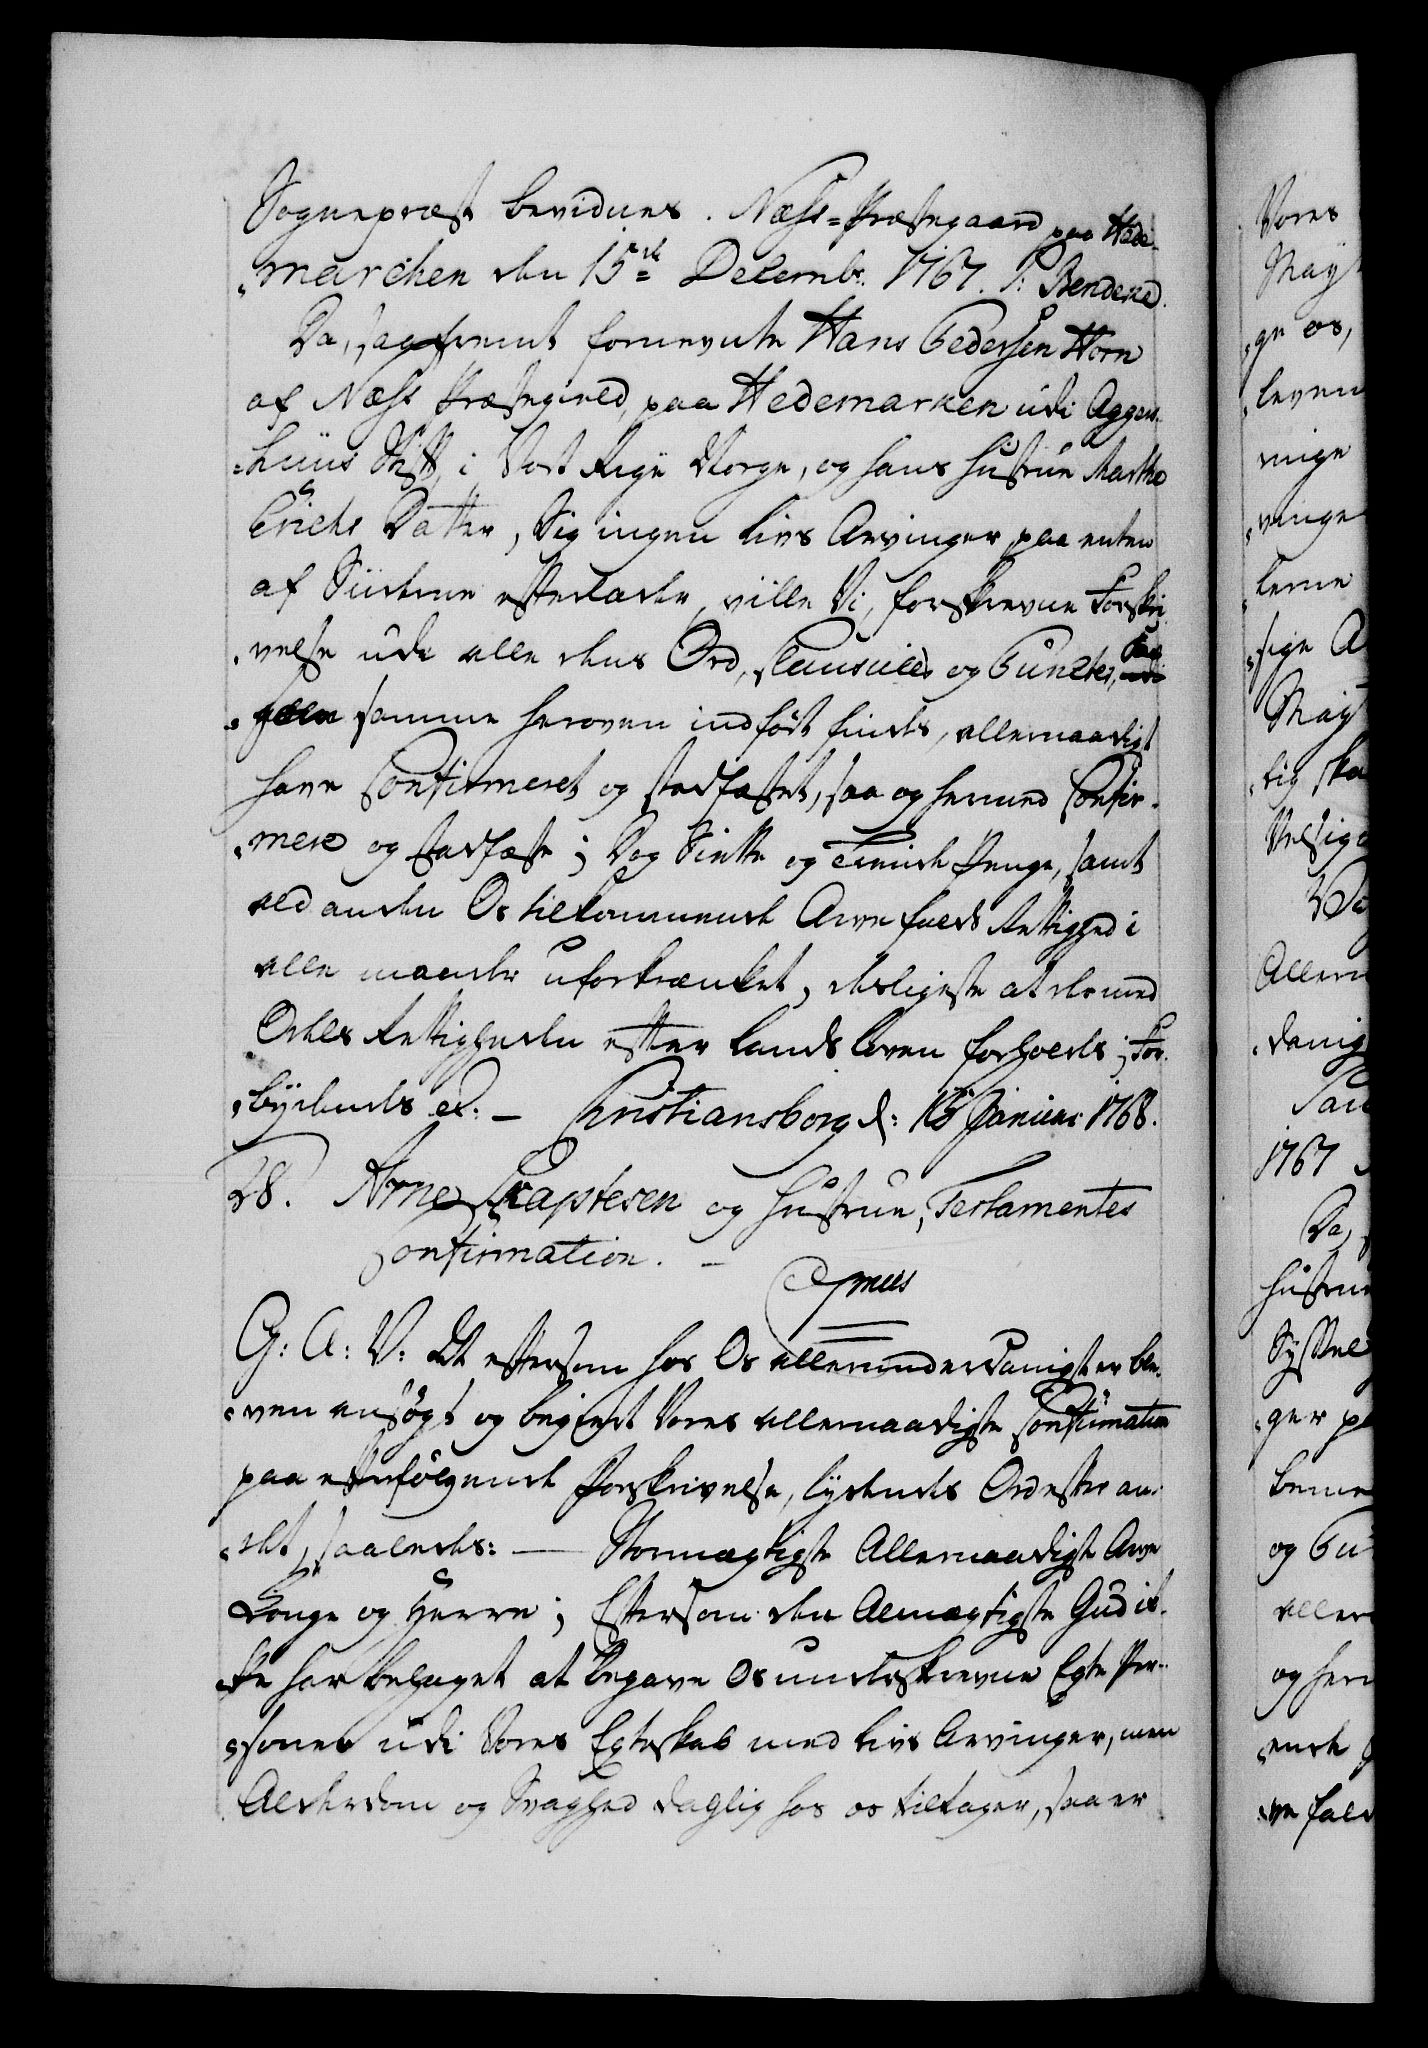 Sognepræst bevidnes. Næss-Præstegaard paa Hede-
marchen den 15de Decembr. 1767. P: Bendeke.
Da, saafremt fornevnte Hans Pedersen Horn
af Næss Præstegield, paa Hedemarken udi Aggers-
huus Stift, i Vort Rige Norge, og hans Hustrue Marthe
Erichs Datter, Sig ingen Livs Arvinger paa enten
af Siiderne efterlader, ville Vi, forskrevne Forskri-
velse udi alle dens Ord, Clausuler og Puncter, saa
som samme heroven indført findes, allernaadigst
have Confirmeret og stadfæstet, saa og hermed Confir-
mere og stadfæste; Dog Siette og Tiende Penge, samt
ald anden Os tilkommende Arvefalds Rettighed i
alle maader uforkrænket, desligeste at dermed
Odels Rettigheden efter Lands Loven forholdes; For-
bydendes etc: – Christiansborg d: 15 Januar: 1768.
28. Arne Knaptesen og Hustrue, Testamentes
Confirmation. –
G: A: V: At eftersom hos Os allerunderdanigst er ble-
ven ansøgt og begiert Vores allernaadigste Confirmation
paa efterfølgende Forskrivelse, lydendes Ord efter an-
det, saaledes: — Stormægtigste Allernaadigste Arve
Konge og Herre; Eftersom den Almægtigste Gud ik-
ke har behaget at begave Os underskrevne Egte Per-
soner udi Vores Egteskab med Livs Arvinger, men
Alderdom og Svaghed daglig hos os tiltager, saa er